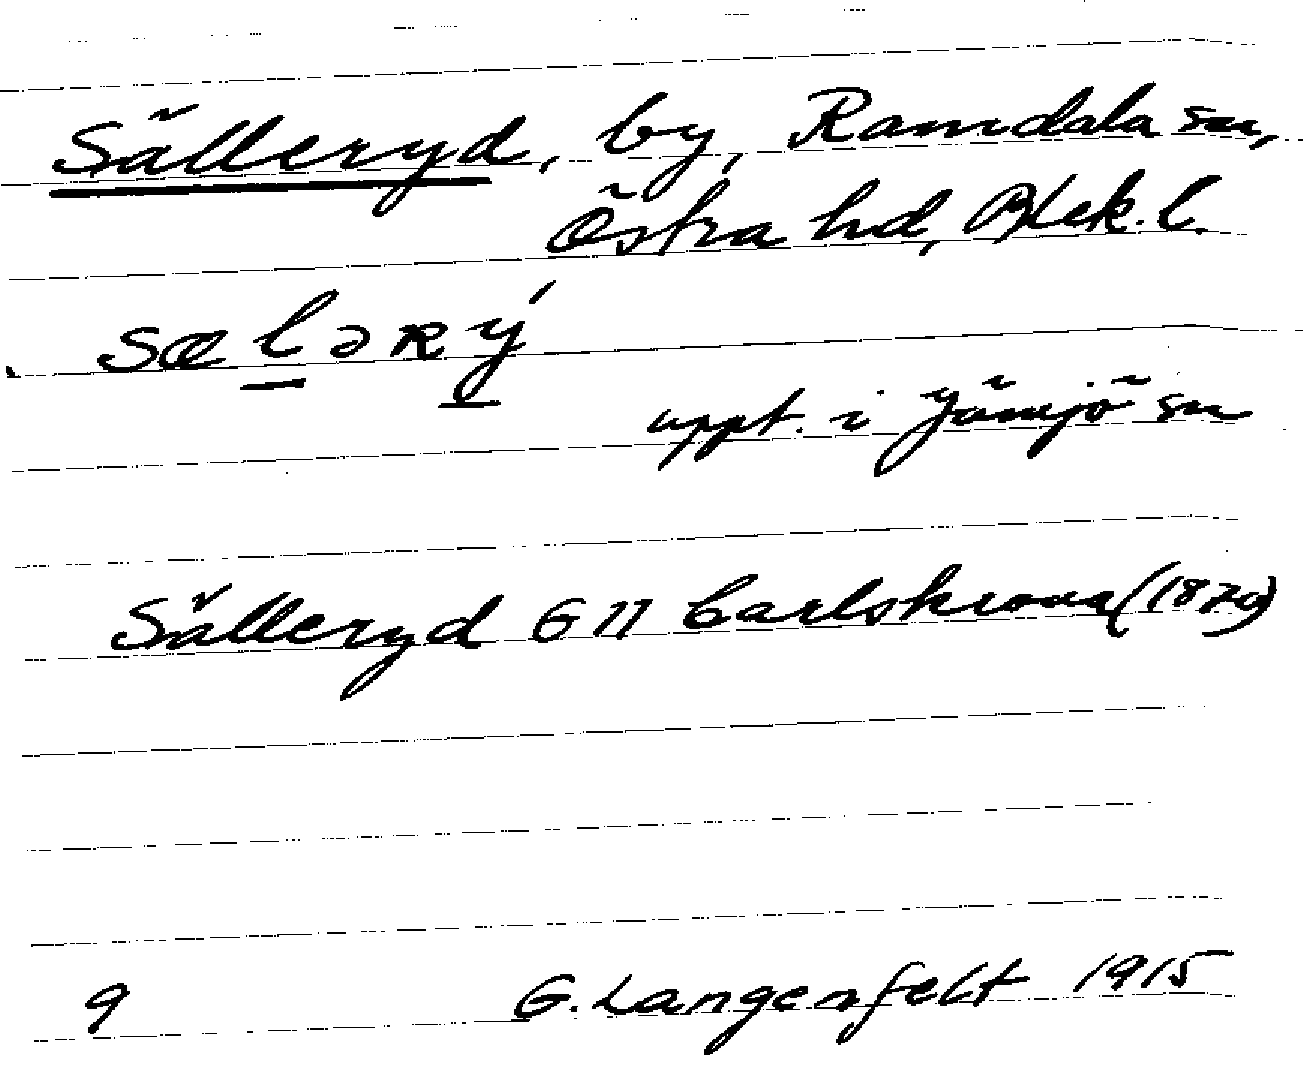 Sälleryd, by, Ramdala sn,
Östra hd, Blek. l.
sælərý
uppt. i Jämjö sn
Sälleryd G II Carlskrona (1870)
9 G. Langenfelt 1915